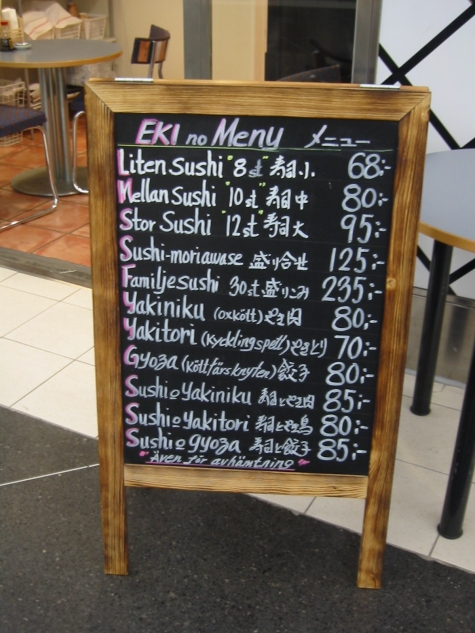 EKI no Meny メニュー
Liten Sushi "8st" 寿司小 68:-
Mellan Sushi "10st" 寿司中 80:-
Stor Sushi "12st" 寿司大 95:-
Sushi-moriawase 盛り合せ 125:-
Familjesushi 30st 盛りこみ 235:-
Yakiniku (oxkött) やき肉 80:-
Yakitori (kycklingspett) やきとり 70:-
Gyoza (köttfärsknyten) 餃子 80:-
Sushi o Yakiniku 寿司とやき肉 85:-
Sushi o Yakitori 寿司とやき鳥 80:-
Sushi o gyoza 寿司と餃子 85:-
"Även för avhämtning"